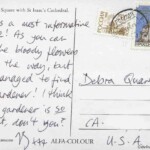 Square with St Isaac's Cathedral.
s a most informative
! As you can
he bloody flowers
the way, but
anaged to find
gardener! I think
gardener is so
t, don't you?
Debra
CA.
U-S-A
ALFA-COLOUR